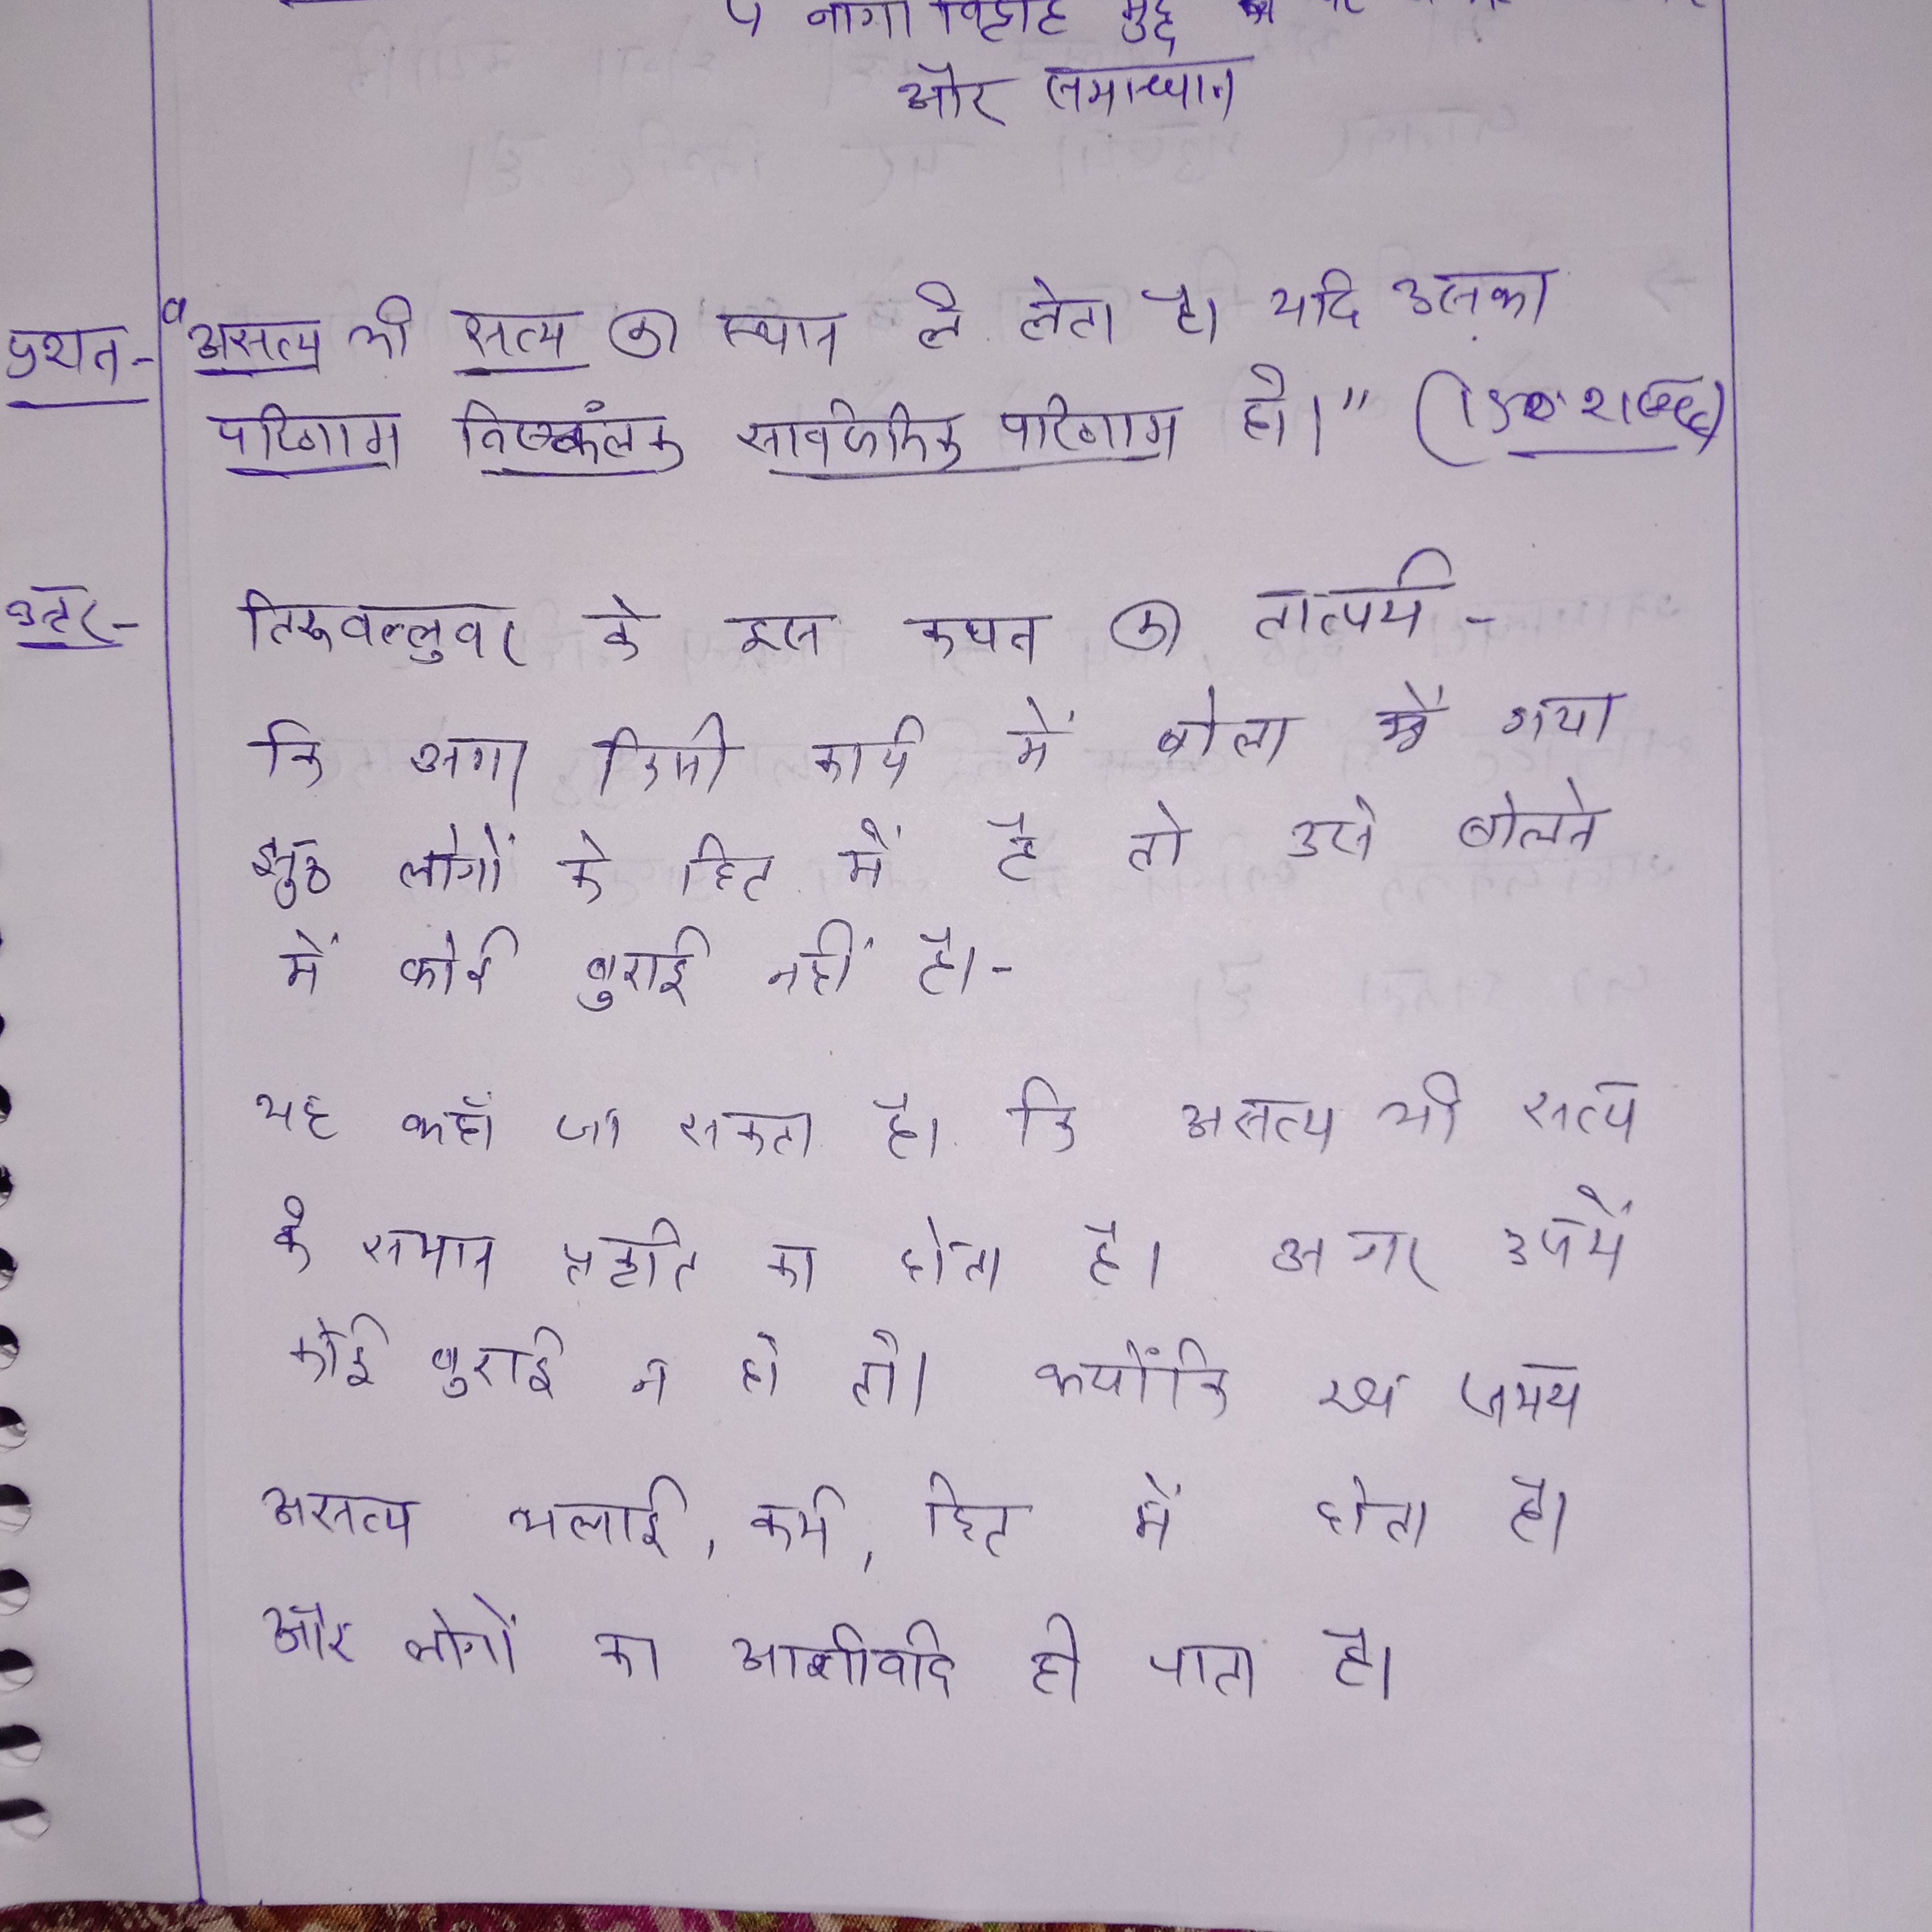 नागा विद्रोह मुद्दे
और समाधान
प्रश्न- "असत्य भी सत्य का स्थान ले लेता है। यदि उसका
परिणाम निष्कलंक सार्वजनिक परिणाम हो।" ( शब्द)
उत्तर- तिरुवल्लुवर के इस कथन का तात्पर्य -
कि अगर किसी कार्य में बोला गया
झुठ लोगों के हित में है तो उसे बोलने
में कोई बुराई नहीं है।-
यह कहाँ जा सकता है। कि असत्य भी सत्य
के समान प्रकृति का होता है। अगर उसमें
कोई बुराई न हो तो। क्योंकि समय
असत्य भलाई, कर्म, हित में होता है।
और लोगों का आशीर्वाद ही पाता है।